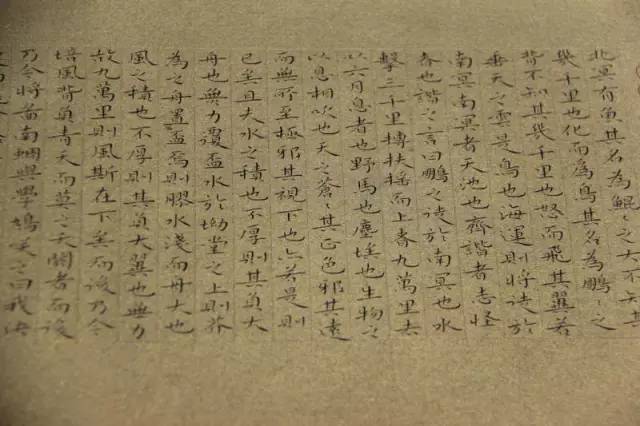 北冥有魚其名為鯤〻之大不知其
幾千里也化而為鳥其名為鵬〻之
背不知其幾千里也怒而飛其翼若
垂天之雲是鳥也海運則將徙於
南冥南冥者天池也齊諧者志怪
者也諧之言曰鵬之徙於南冥也水
擊三千里摶扶搖而上者九萬里去
以六月息者也野馬也塵埃也生物之
以息相吹也天之蒼〻其正色邪其遠
而無所至極邪其視下也亦若是則
已矣且夫水之積也不厚則其負大
舟也無力覆盃水於坳堂之上則芥
為之舟置盃焉則膠水淺而舟大也
風之積也不厚則其負大翼也無力
故九萬里則風斯在下矣而後乃今
培風背負青天而莫之夭閼者而後
乃今將啚南蜩與學鳩笑之曰我決